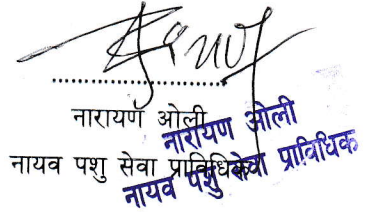 ..............................
नारायण ओली
नायव पशु सेवा प्राविधिक
नारायण ओली
नायव पशु सेवा प्राविधिक